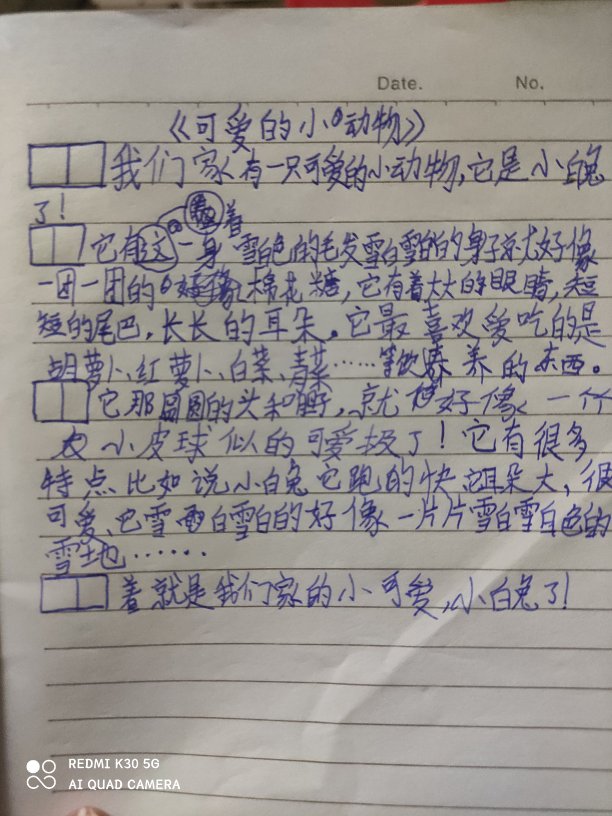 Date. No.
《可爱的小动物》
我们家有一只可爱的小动物,它是小白兔
了!
着
它有这一身雪白色的毛发雪白雪的的身子就好像
一团一团的棉花糖,它有着大大的眼睛,短
短的尾巴,长长的耳朵。它最喜欢爱吃的是
胡萝卜、红萝卜、白菜、青菜……等养的东西。
它那圆圆的头和,就好像一个
小皮球似的可爱极了!它有很多
特点比如说小白兔它跑的快,耳朵大,很
可爱、巴雪白雪白的好像一片片雪白雪白色的
雪地……
着就是我们家的小可爱,小白兔了!
REDMI K30 5G
AI QUAD CAMERA